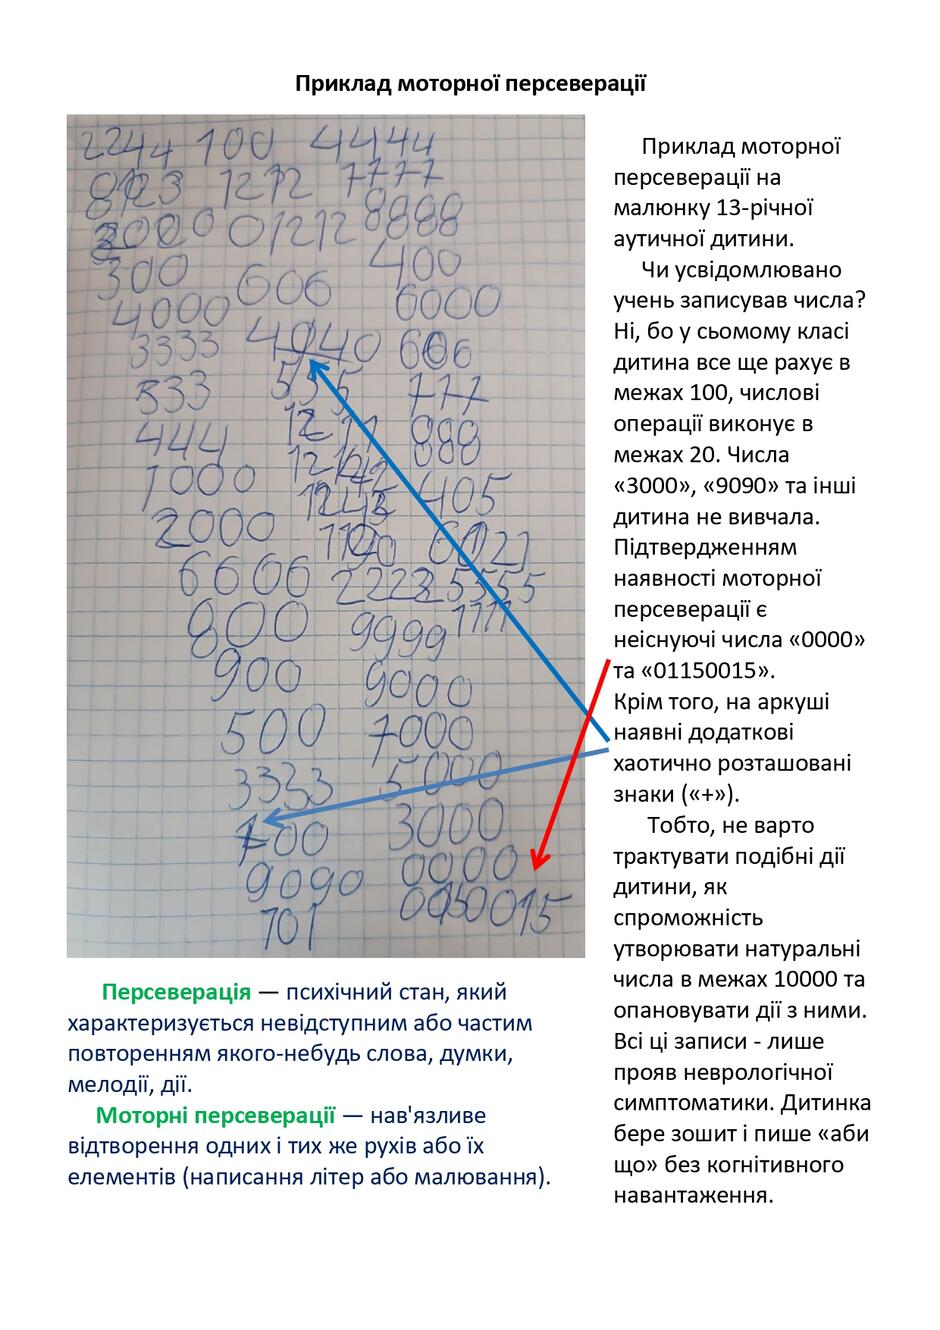 Приклад моторної персеверації
2244 100 4444
8123 1212 7777
3000 01212 8888
300 606 400
4000 6000
3333 4040 606
333 555 777
444 888
1000 405
2000
6606 2223 5555
800 9999 1111
900 9000
500 7000
3333 5000
3000
9090 0000
701
Приклад моторної
персеверації на
малюнку 13-річної
аутичної дитини.
Чи усвідомлювано
учень записував числа?
Ні, бо у сьомому класі
дитина все ще рахує в
межах 100, числові
операції виконує в
межах 20. Числа
«3000», «9090» та інші
дитина не вивчала.
Підтвердженням
наявності моторної
персеверації є
неіснуючі числа «0000»
та «01150015».
Крім того, на аркуші
наявні додаткові
хаотично розташовані
знаки («+»).
Тобто, не варто
трактувати подібні дії
дитини, як
спроможність
утворювати натуральні
числа в межах 10000 та
опановувати дії з ними.
Всі ці записи - лише
прояв неврологічної
симптоматики. Дитинка
бере зошит і пише «аби
що» без когнітивного
навантаження.
Персеверація — психічний стан, який
характеризується невідступним або частим
повторенням якого-небудь слова, думки,
мелодії, дії.
Моторні персеверації — нав'язливе
відтворення одних і тих же рухів або їх
елементів (написання літер або малювання).